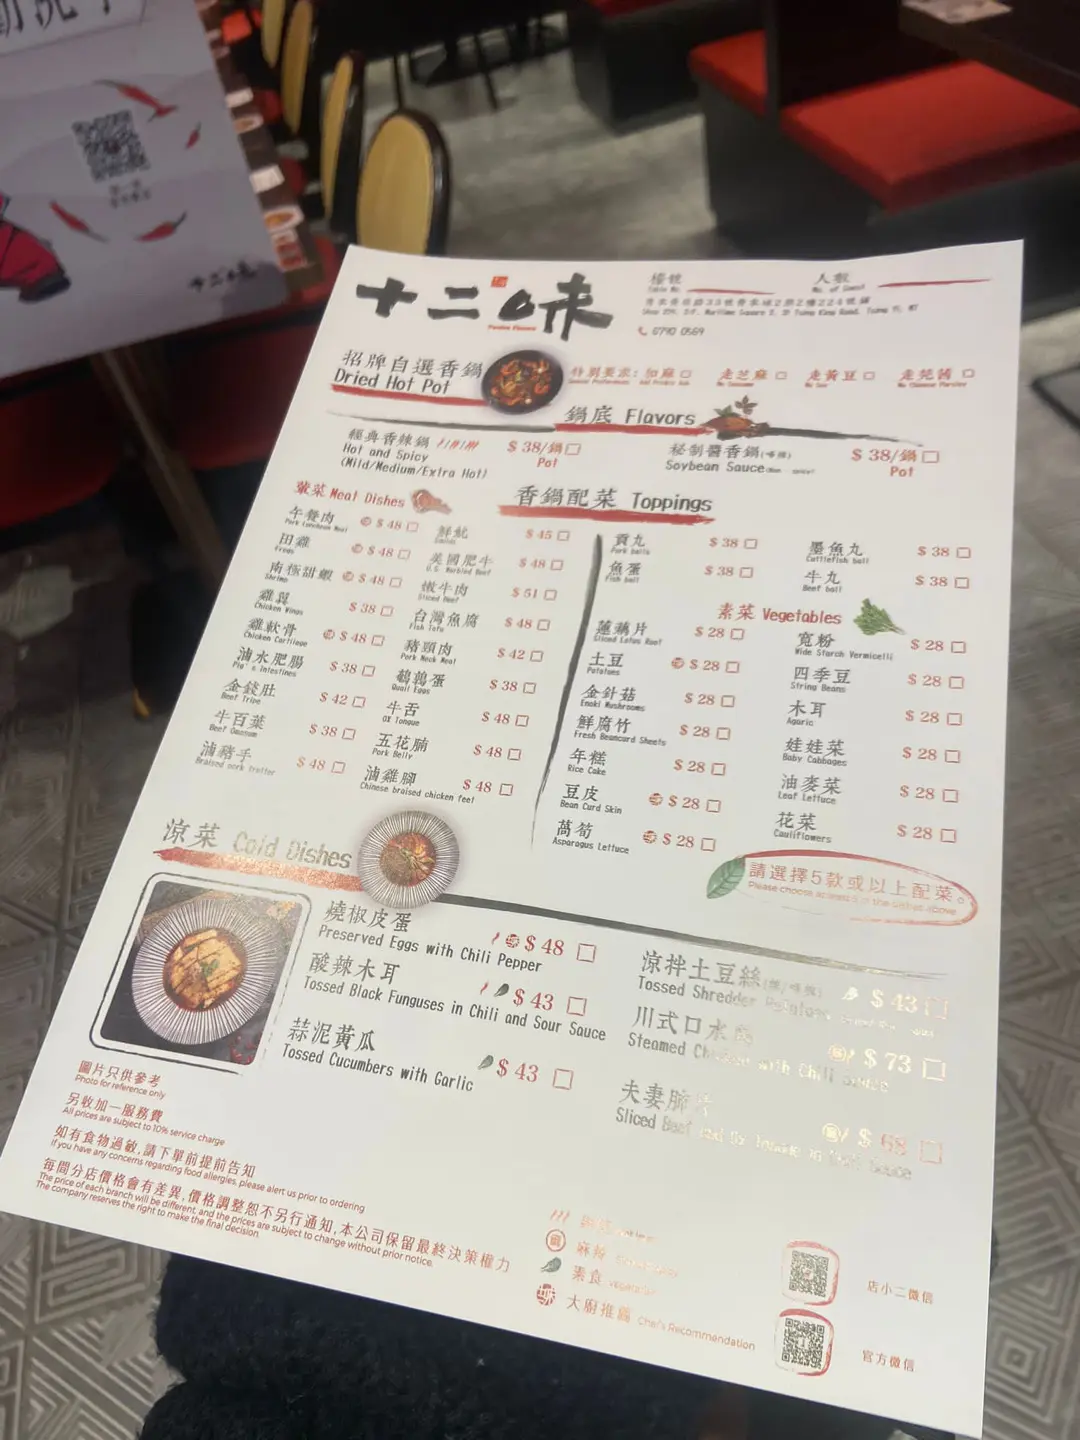 十二味
十二味
Twelve Flavors
檯號
Table No.
人數
No. of Guest
青衣青敬路33號青衣城2期2樓224號舖
招牌自選香鍋
Dried Hot Pot
特別要求:
加麻
走芝麻
走黃豆
走芫茜
鍋底 Flavors
經典香辣鍋
Hot and Spicy
(Mild/Medium/Extra Hot)
$ 38/鍋
Pot
秘制醬香鍋
Soybean Sauce
$ 38/鍋
Pot
香鍋配菜 Toppings
葷菜 Meat Dishes
午餐肉 $ 48
Pork Luncheon Meat
田雞 $ 48
Frogs
南極甜蝦 $ 48
Shrimp
雞翼 $ 38
Chicken Wings
雞軟骨 $ 48
Chicken Cartilage
滷水肥腸 $ 38
Pig's Intestines
金錢肚 $ 42
Beef Tripe
牛百葉 $ 38
Beef Omasum
滷豬手 $ 48
Braised pork trotter
鮮魷 $ 45
Squids
美國肥牛 $ 48
U.S. Marbled Beef
嫩牛肉 $ 51
Sliced Beef
台灣魚腐 $ 48
Fish Tofu
豬頸肉 $ 42
Pork Neck Meat
鵪鶉蛋 $ 38
Quail Eggs
牛舌 $ 48
OX Tongue
五花腩 $ 48
Pork Belly
滷雞腳 $ 48
Chinese braised chicken feet
貢丸 $ 38
Pork balls
魚蛋 $ 38
Fish ball
墨魚丸 $ 38
Cuttlefish ball
牛丸 $ 38
Beef ball
素菜 Vegetables
蓮藕片 $ 28
Sliced Lotus Root
土豆 $ 28
Potatoes
金針菇 $ 28
Enoki Mushrooms
鮮腐竹 $ 28
Fresh Beancurd Sheets
年糕 $ 28
Rice Cake
豆皮 $ 28
Bean Curd Skin
萵筍 $ 28
Asparagus Lettuce
寬粉 $ 28
Wide Starch Vermicelli
四季豆 $ 28
String Beans
木耳 $ 28
Agaric
娃娃菜 $ 28
Baby Cabbages
油麥菜 $ 28
Leaf Lettuce
花菜 $ 28
Cauliflowers
請選擇5款或以上配菜。
涼菜 Cold Dishes
燒椒皮蛋 $ 48
Preserved Eggs with Chili Pepper
酸辣木耳 $ 43
Tossed Black Funguses in Chili and Sour Sauce
蒜泥黃瓜 $ 43
Tossed Cucumbers with Garlic
涼拌土豆絲 $ 43
Tossed Shredded Potatoes
川式口水 $ 73
Steamed Chicken with Chili Sauce
夫妻肺片 $ 68
Sliced Beef and Ox Tongue in Chili Sauce
圖片只供參考
Photo for reference only
另收加一服務費
All prices are subject to 10% service charge
如有食物過敏,請下單前提前告知
If you have any concerns regarding food allergies, please alert us prior to ordering
每間分店價格會有差異,價格調整恕不另行通知,本公司保留最終決策權力
The price of each branch will be different, and the prices are subject to change without prior notice.
The company reserves the right to make the final decision.
麻辣
素食 Vegetarian
大廚推薦 Chef's Recommendation
店小二微信
官方微信